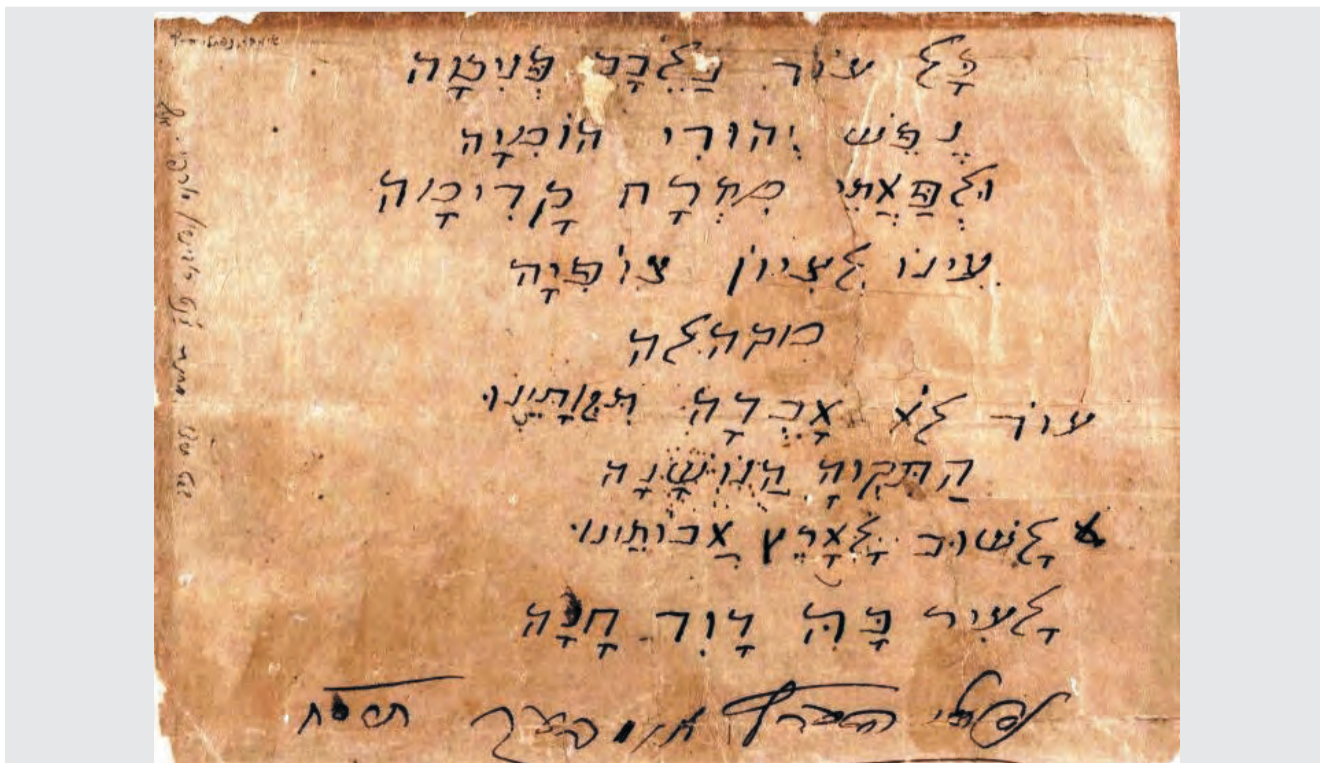 כָּל עוֹד בַּלֵּבָב פְּנִימָה
נֶפֶשׁ יְהוּדִי הוֹמִיָּה
וּלְפַאֲתֵי מִזְרָח קָדִימָה
עֵינוֹ לְצִיּוֹן צוֹפִיָּה
מקהלה
עוֹד לֹא אָבְדָה תִּקְוָתֵינוּ
הַתִּקְוָה הַנּוֹשָׁנָה
לָשׁוּב לְאֶרֶץ אֲבוֹתֵינוּ
לָעִיר בָּהּ דָּוִד חָנָה
נפתלי הערץ אימבער תרסח